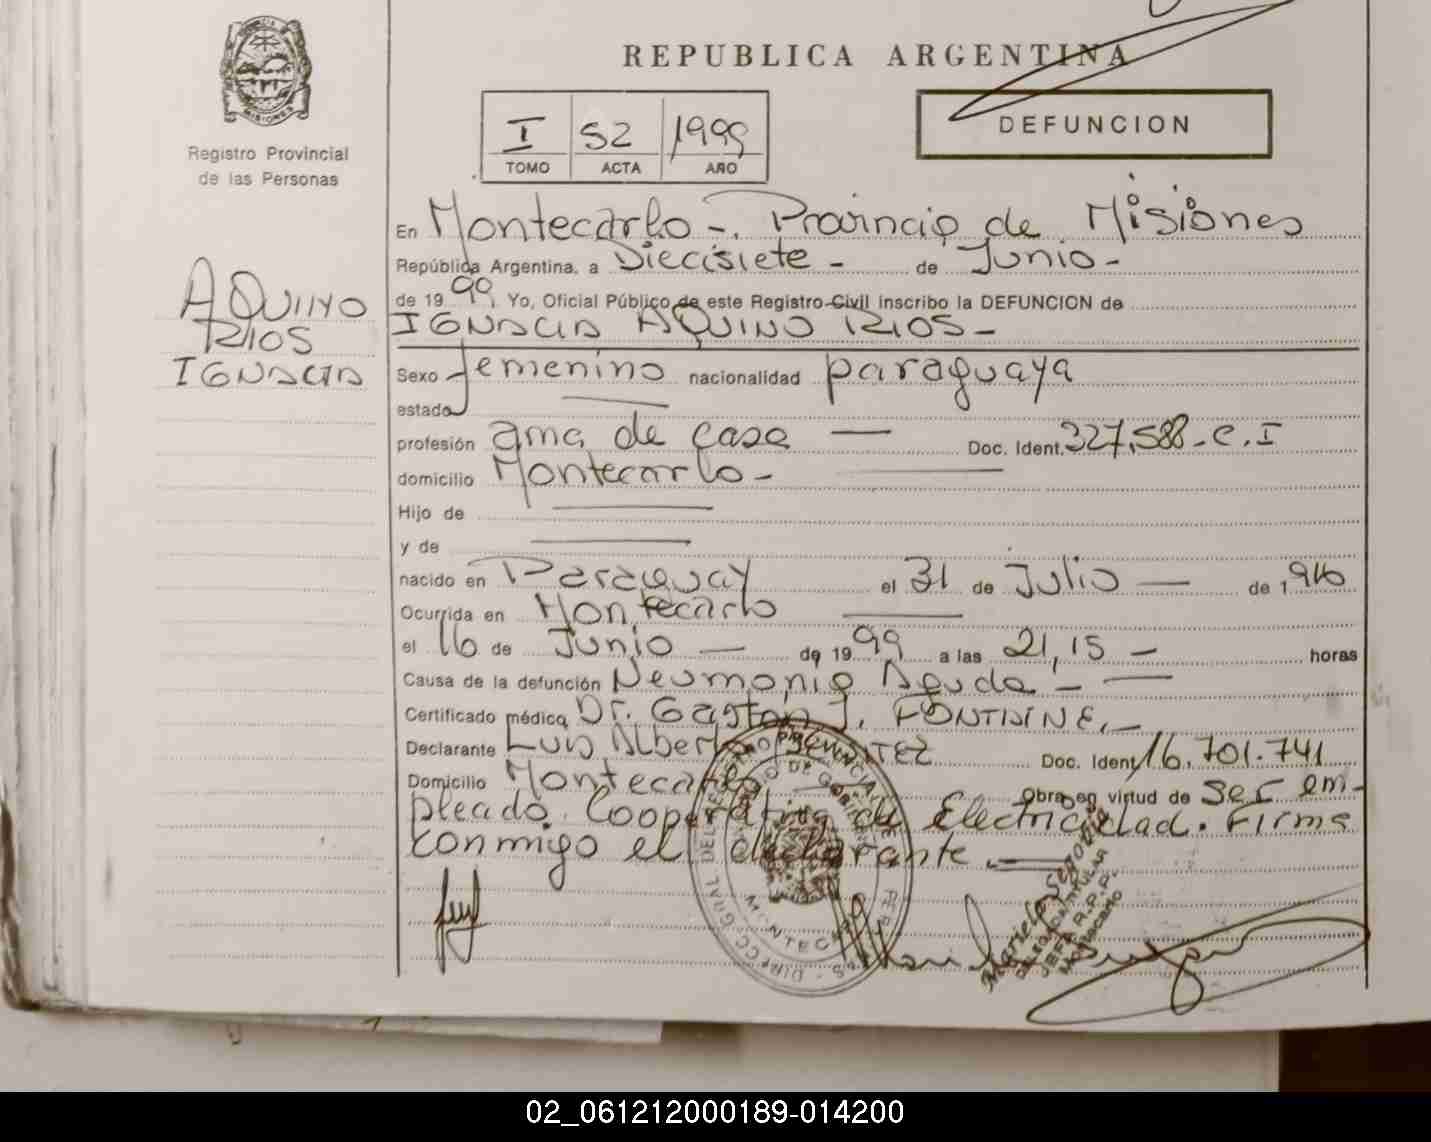 REPUBLICA ARGENTINA
MISIONES
Registro Provincial
de las Personas
I 52 1999
TOMO ACTA AÑO
DEFUNCION
AQUINO
RIOS
IGNACIA
En Montecarlo -. Provincia de Misiones
República Argentina, a Diecisiete - de Junio -
de 1999. Yo, Oficial Público de este Registro Civil inscribo la DEFUNCION de
IGNACIA AQUINO RIOS -
Sexo femenino nacionalidad paraguaya
estado
profesión ama de casa — Doc. Ident. 327.588 - C.I
domicilio Montecarlo -
Hijo de
y de
nacido en Paraguay el 31 de Julio — de 1916
Ocurrida en Montecarlo
el 16 de Junio — de 1999 a las 21,15 — horas
Causa de la defunción Neumonia Aguda -
Certificado médico Dr. Gastón J. FONTAINE. -
Declarante Luis Alberto Doc. Ident. 16.701.741
Domicilio Montecarlo Obra en virtud de ser em-
pleado Cooperativa de Electricidad. Firma
conmigo el declarante. —
MONTECARLO
Mariela Segovia
DELEGADA TITULAR
JEFA R.P.P.
MONTECARLO
02_061212000189-014200